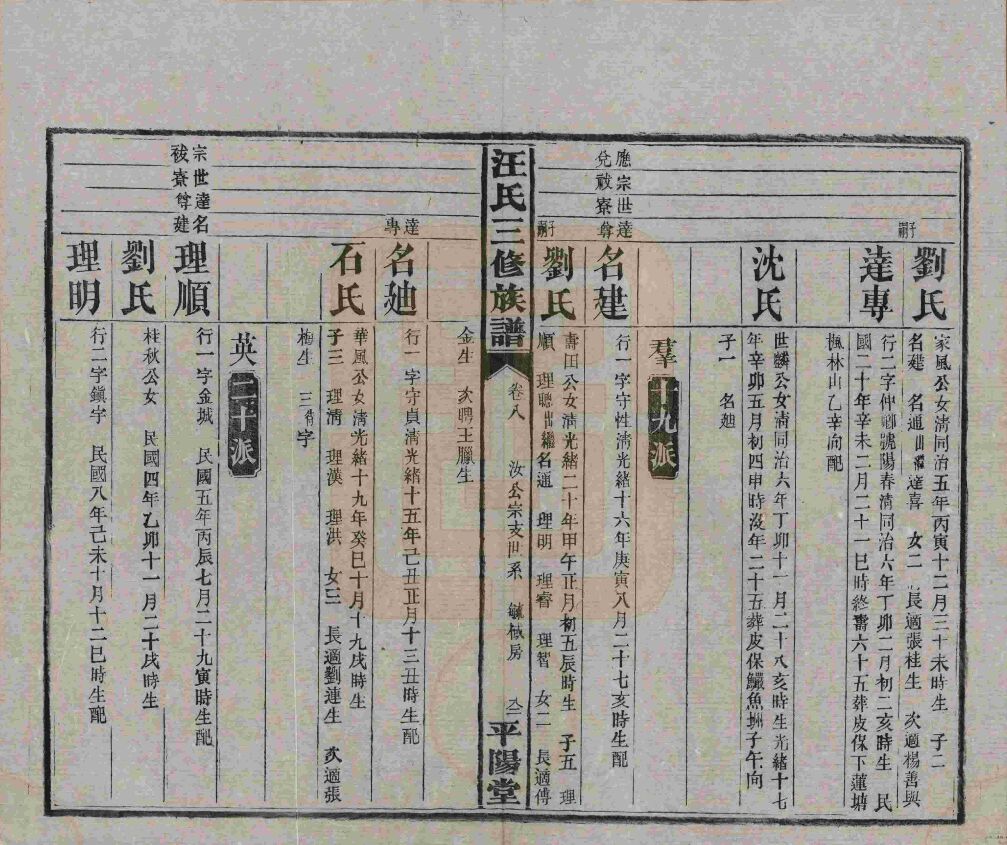 子嗣
劉氏
家風公女清同治五年丙寅十二月三十未時生 子二
名廷 名通出繼達喜 女二 長適張桂生 次適楊善與
達專
行二字仲卿號陽春清同治六年丁卯二月初二亥時生 民
國二十年辛未二月二十一巳時終壽六十五葬皮保下蓮塘
楓林山乙辛向配
沈氏
世麟公女清同治六年丁卯十一月二十八亥時生光緒十七
年辛卯五月初四申時沒年二十五葬皮保鱺魚洲子午向
子一 名廸
應宗世達
兌祓寮尊
羣十九派
名建
行一字守性清光緒十六年庚寅八月二十七亥時生配
子嗣
劉氏
壽田公女清光緒二十年甲午正月初五辰時生 子五 理
順 理聰出繼名通 理明 理睿 理智 女二 長適傅
汪氏三修族譜
卷八 汝公宗支世系 毓棫房
平陽堂
金生 次聘王臘生
達專
名廸
行一字守貞清光緒十五年己丑正月十三丑時生配
石氏
華風公女清光緒十九年癸巳十月十九戌時生
子三 理清 理漢 理洪 女三 長適劉連生 次適張
梅生 三待字
宗世達名
祓寮尊建
英二十派
理順
行一字金城 民國五年丙辰七月二十九寅時生配
劉氏
桂秋公女 民國四年乙卯十一月二十戌時生
理明
行二字鎮宇 民國八年己未十月十二巳時生配